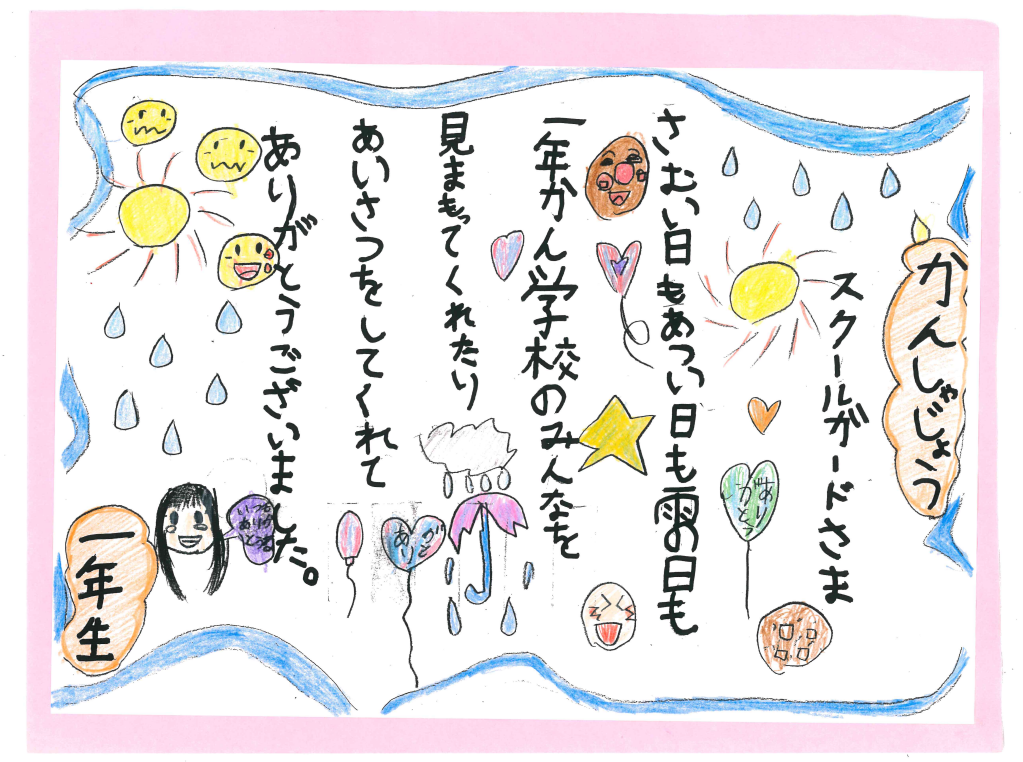 かんしゃじょう
スクールガードさま
さむい日もあつい日も雨の日も
一年かん学校のみんなを
見まもってくれたり
あいさつをしてくれて
ありがとうございました。
一年生
ありがとう
ありがとう
いつもありがとうね